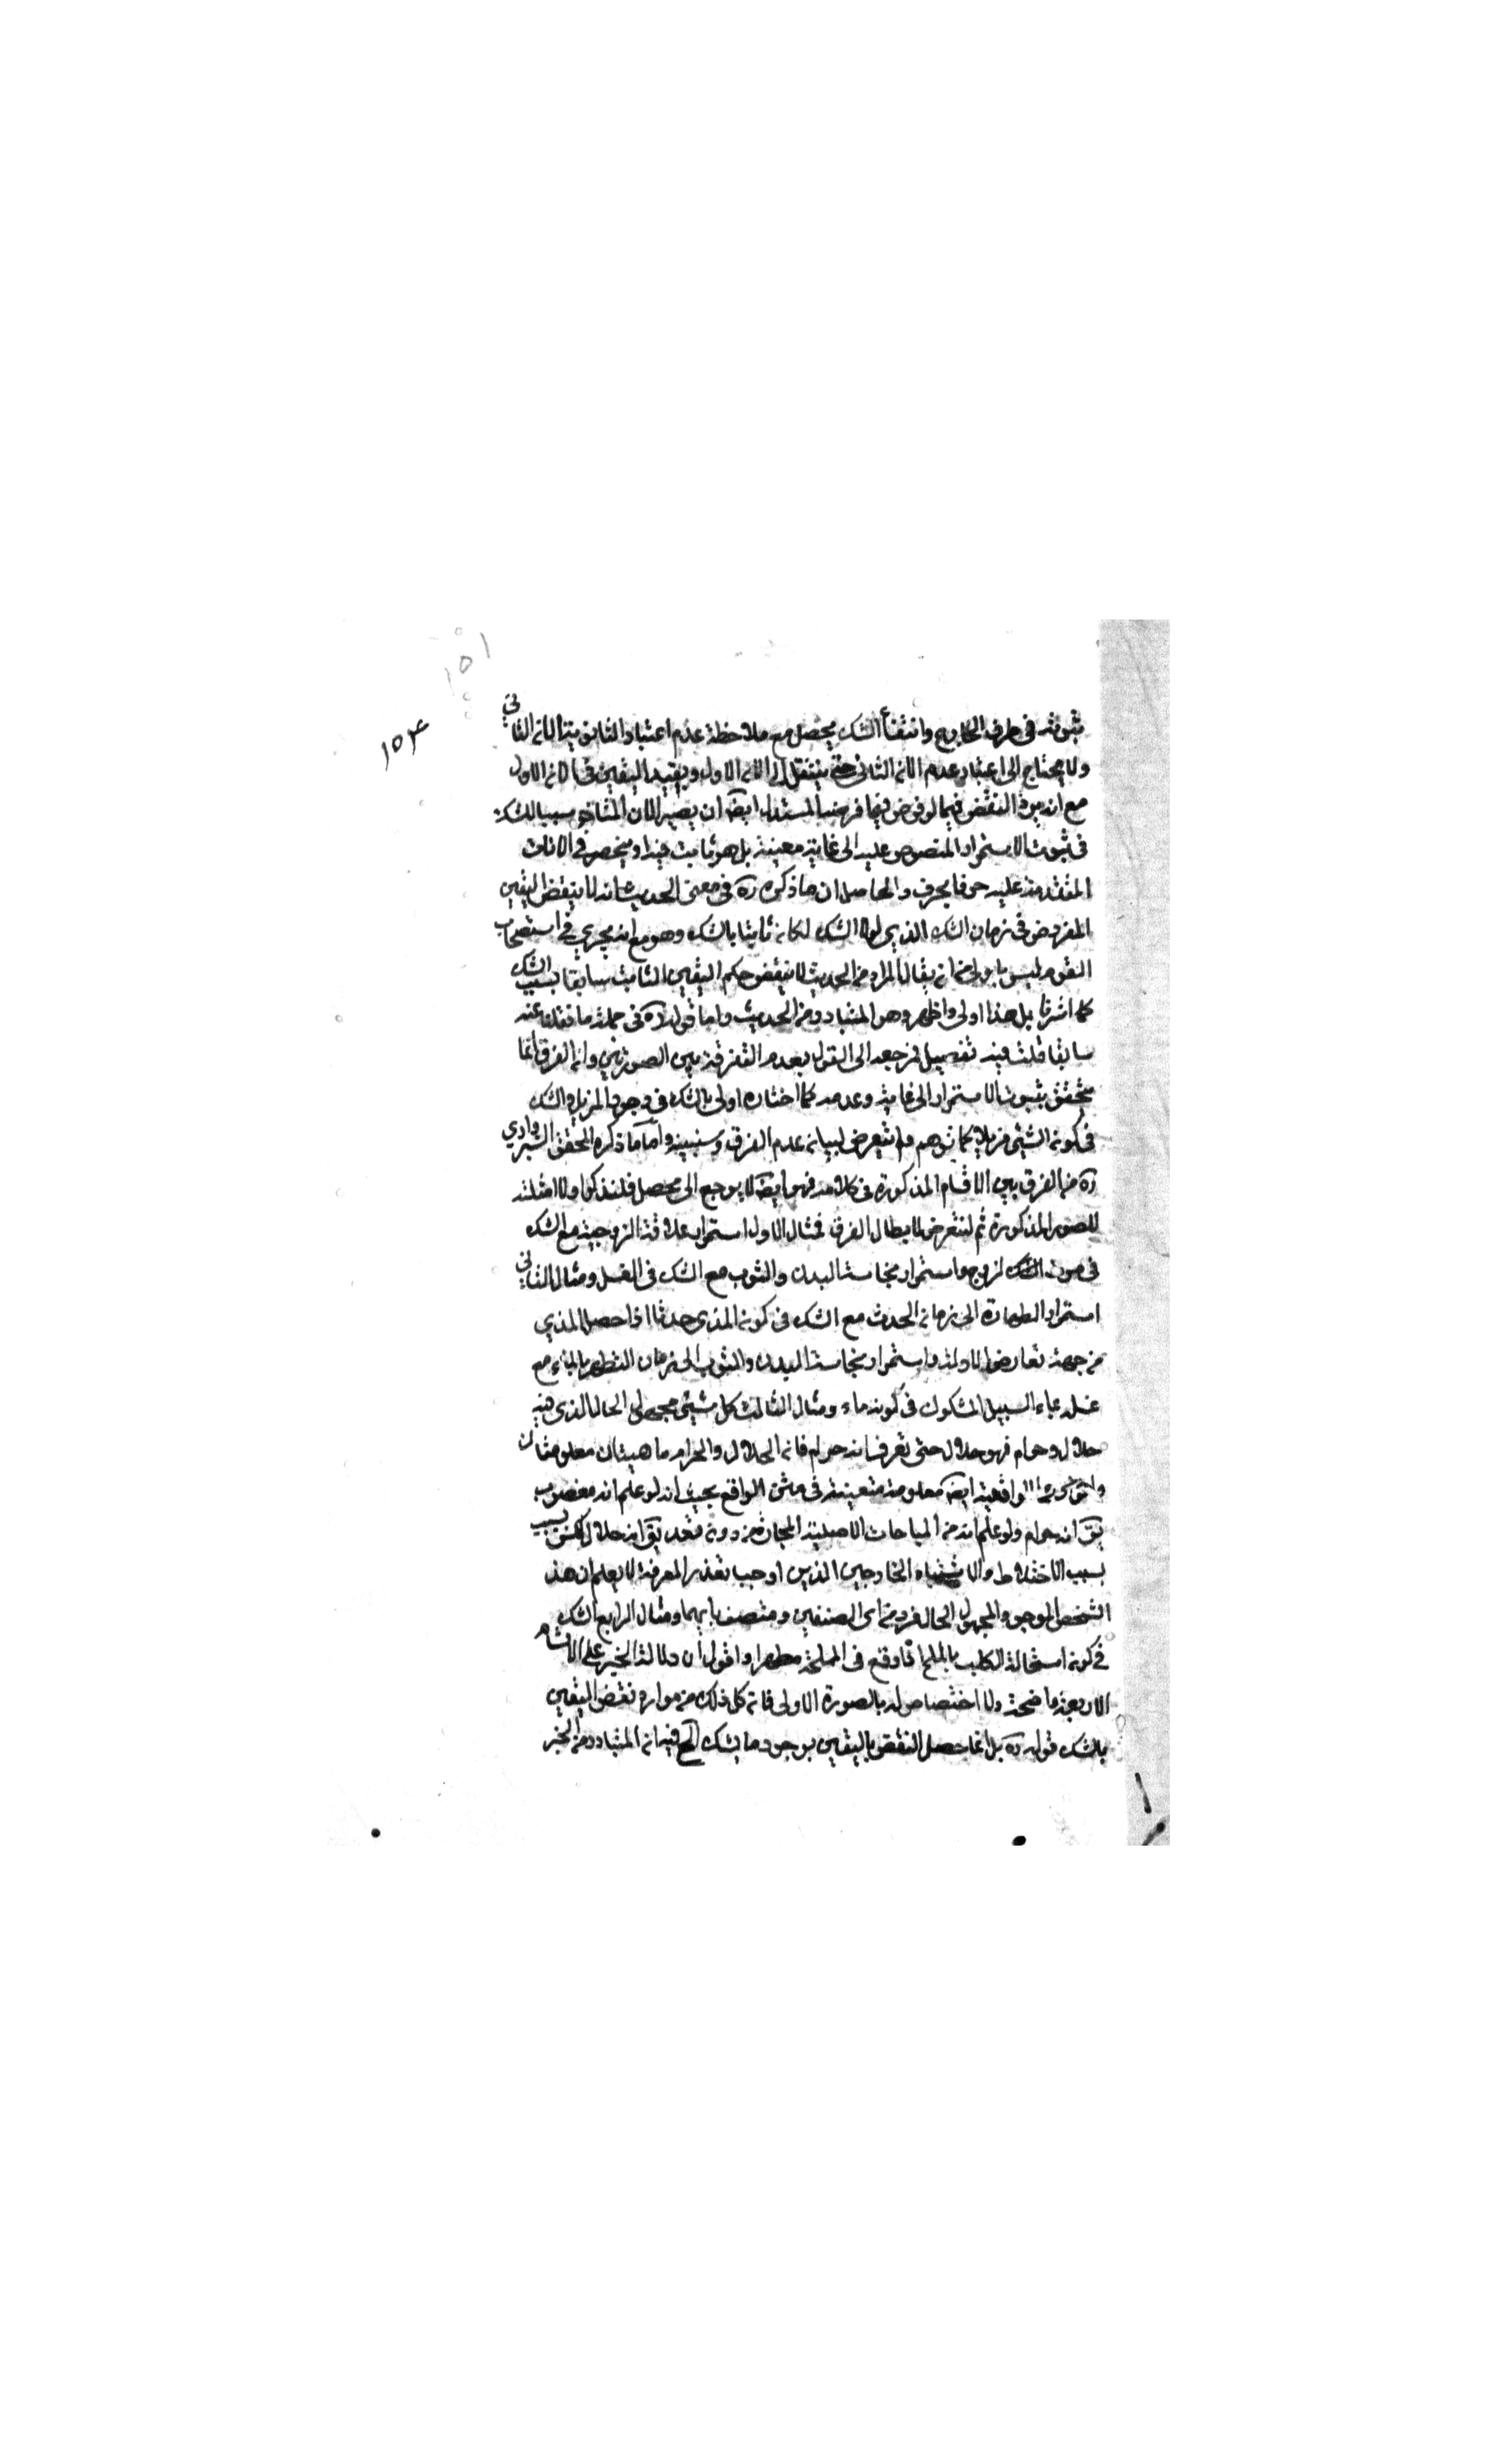 ١٥١
١٥٣
ثبوته فى ظرف الخارج وانتفاء الشك يحصل مع ملاحظة عدم اعتبار الثانوية الان الثانى
ولا يحتاج الى اعتبار عدم الان الثانى حتى ينتقل الى الان الاول ويقيد اليقين فى الان الاول
مع انه يرد النقض فيما لو فرض فيما فرضه المستدل ايضا ان يصير الان المتاخر سببا للشك
فى ثبوت الاستمرار المنصوص عليه الى غاية معينة بل هو ثابت فيه او منحصر فى الانات
المتقدمة عليه حرفا بحرف والحاصل ان ما ذكره ره فى معنى الحديث انه لا ينقض اليقين
المفروض فى زمان الشك الذى لولا الشك لكان ثابتا بالشك وهو مع انه يجرى فى استصحاب
القوم ليس باولى من ان يقال المراد من الحديث لا ينقض حكم اليقين الثابت سابقا بسبب الشك
كما اشرنا بل هذا اولى واظهر وهو المتبادر من الحديث واما قوله ره فى جملة ما نقلنا عنه
سابقا قلت فيه تفصيل فمرجعه الى القول بعدم التفرقة بين الصورتين وان الفرق انما
يتحقق بثبوت الاستمرار الى غاية وعدمه كما اختاره اولى بالشك فى وجود المزيل والشك
فى كون الشئ مزيلا كما توهم ولم يتعرض لبيان عدم الفرق وسنبينه واما ما ذكره المحقق السبزوارى
ره من الفرق بين الاقسام المذكورة فى كلامه فهو ايضا لا يرجع الى محصل فلنذكر اولا امثلة
للصور المذكورة ثم لنتعرض لابطال الفرق فمثال الاول استمرار علاقة الزوجية مع الشك
فى موت الزوج واستمرار نجاسة البدن والثوب مع الشك فى الغسل ومثال الثانى
استمرار الطهارة الى زمان الحدث مع الشك فى كون المذى حدثا اذا حصل المذى
من جهة تعارض الادلة واستمرار نجاسة البدن والثوب الى زمان التطهر بالماء مع
غسله بماء السبيل المشكوك فى كونه ماء ومثال الثالث كل شيئ مجهول الحال الذى فيه
حلال وحرام فهو حلال حتى تعرف انه حرام فان الحلال والحرام ماهيتان معلومتان
الواقعية ايضا معلومة متعينة فى متن الواقع بحيث انه لو علم انه مغصوب
يق انه حرام ولو علم انه من المباحات الاصلية المجازة من دون تعد يق انه حلال لكن بسبب
بسبب الاختلاط والاشتباه الخارجين الذين اوجبا تعذر المعرفة لا يعلم ان هذ
الشخص الموجود المجهول الحال فرد من اى الصنفين ومتصف بايهما ومثال الرابع الشك
فى كون استحالة الكلب بالملح اذا وقع فى المملحة مطهرا واقول ان دلالة الخبر على الاقسام
الاربعة واضحة ولا اختصاص له بالصورة الاولى فان كل ذلك من موارد نقض اليقين
بالشك قوله ره بل انما حصل النقض باليقين بوجود ما يشك الخ فيه ان المتبادر من الخبر